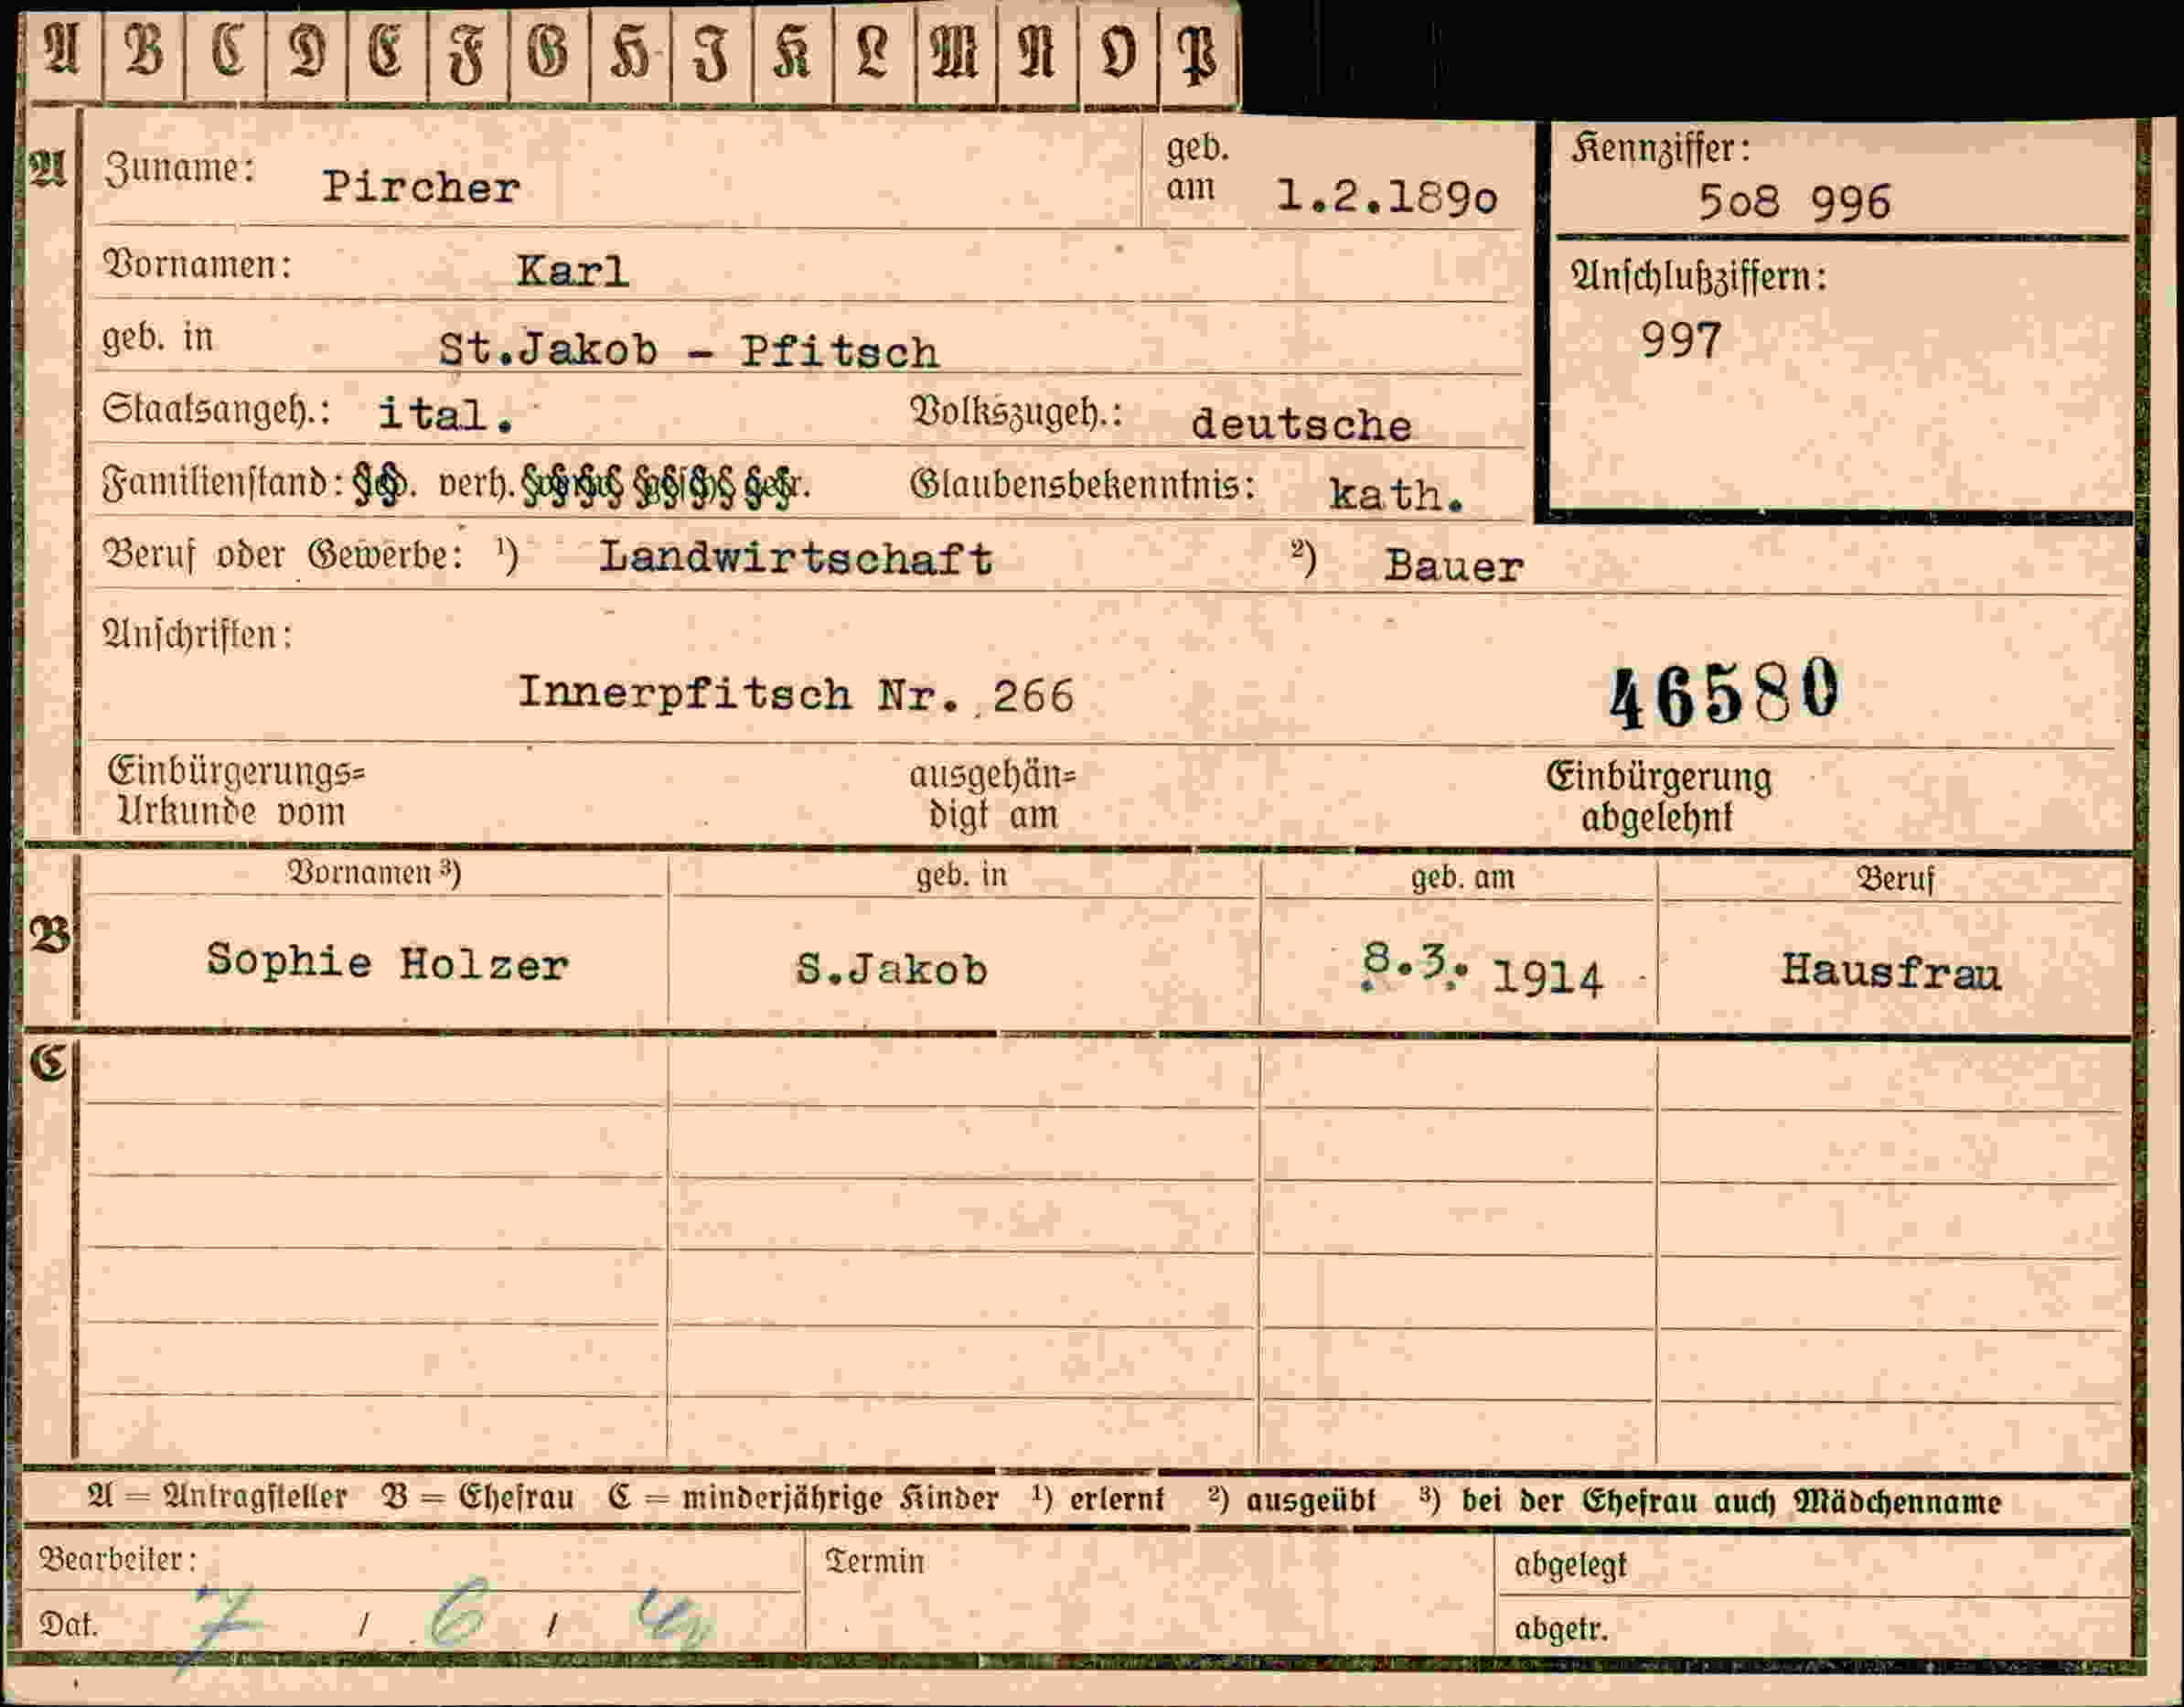 A B C D E F G H I K L M N O P
A Zuname: Pircher geb. am 1.2.1890
Kennziffer: 508 996
Vornamen: Karl
Anschlußziffern: 997
geb. in St.Jakob - Pfitsch
Staatsangeh.: ital. Volkszugeh.: deutsche
Familienstand: verh. Glaubensbekenntnis: kath.
Beruf oder Gewerbe: ¹) Landwirtschaft ²) Bauer
Anschriften:
Innerpfitsch Nr. 266 46580
Einbürgerungs= ausgehän= Einbürgerung
Urkunde vom digt am abgelehnt
Vornamen ³) geb. in geb. am Beruf
B Sophie Holzer S.Jakob 8.3. 1914 Hausfrau
C
A = Antragsteller B = Ehefrau C = minderjährige Kinder ¹) erlernt ²) ausgeübt ³) bei der Ehefrau auch Mädchenname
Bearbeiter: Termin abgelegt
Dat. 7 / 6 / abgetr.